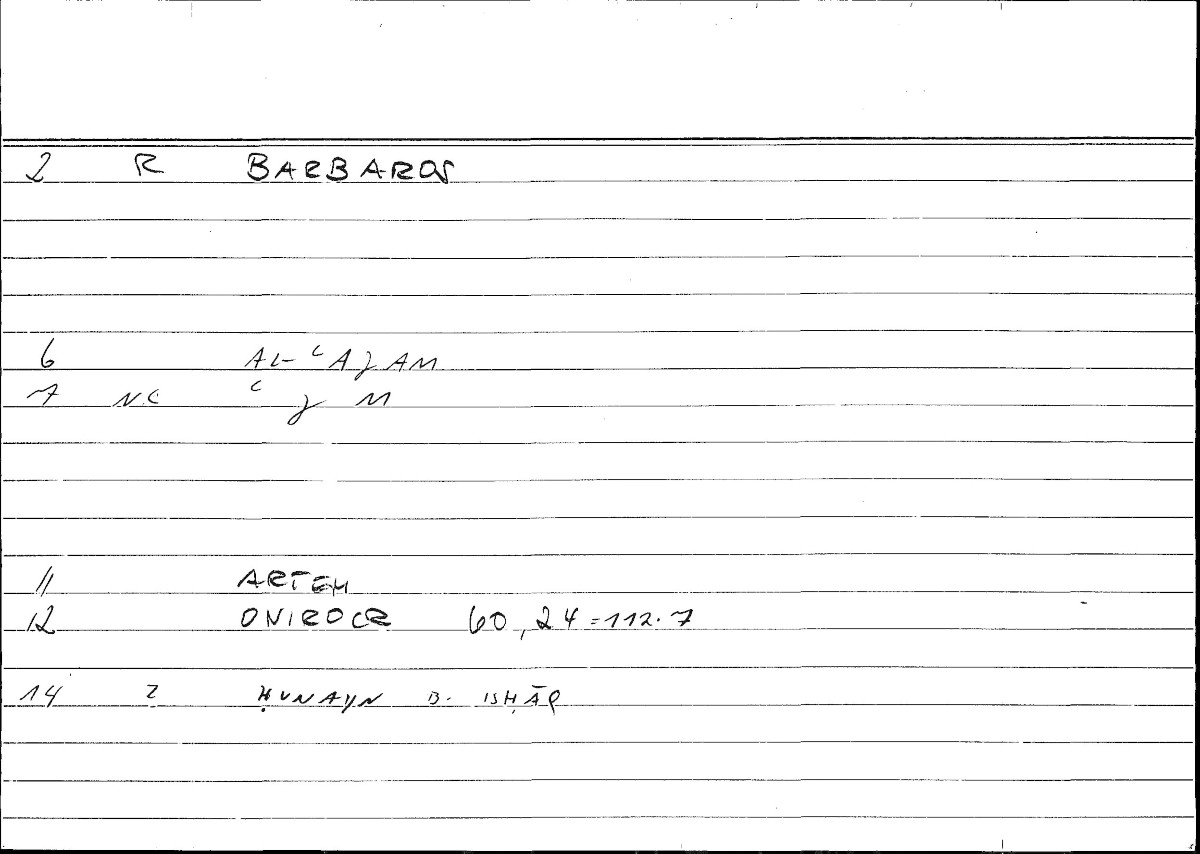 2 R BARBAROS
6 AL-ʿAJAM
7 NC ʿ J M
11 ARTEM
12 ONIROCR 60,24=112.7
14 2 ḤUNAYN B. ISḤĀQ